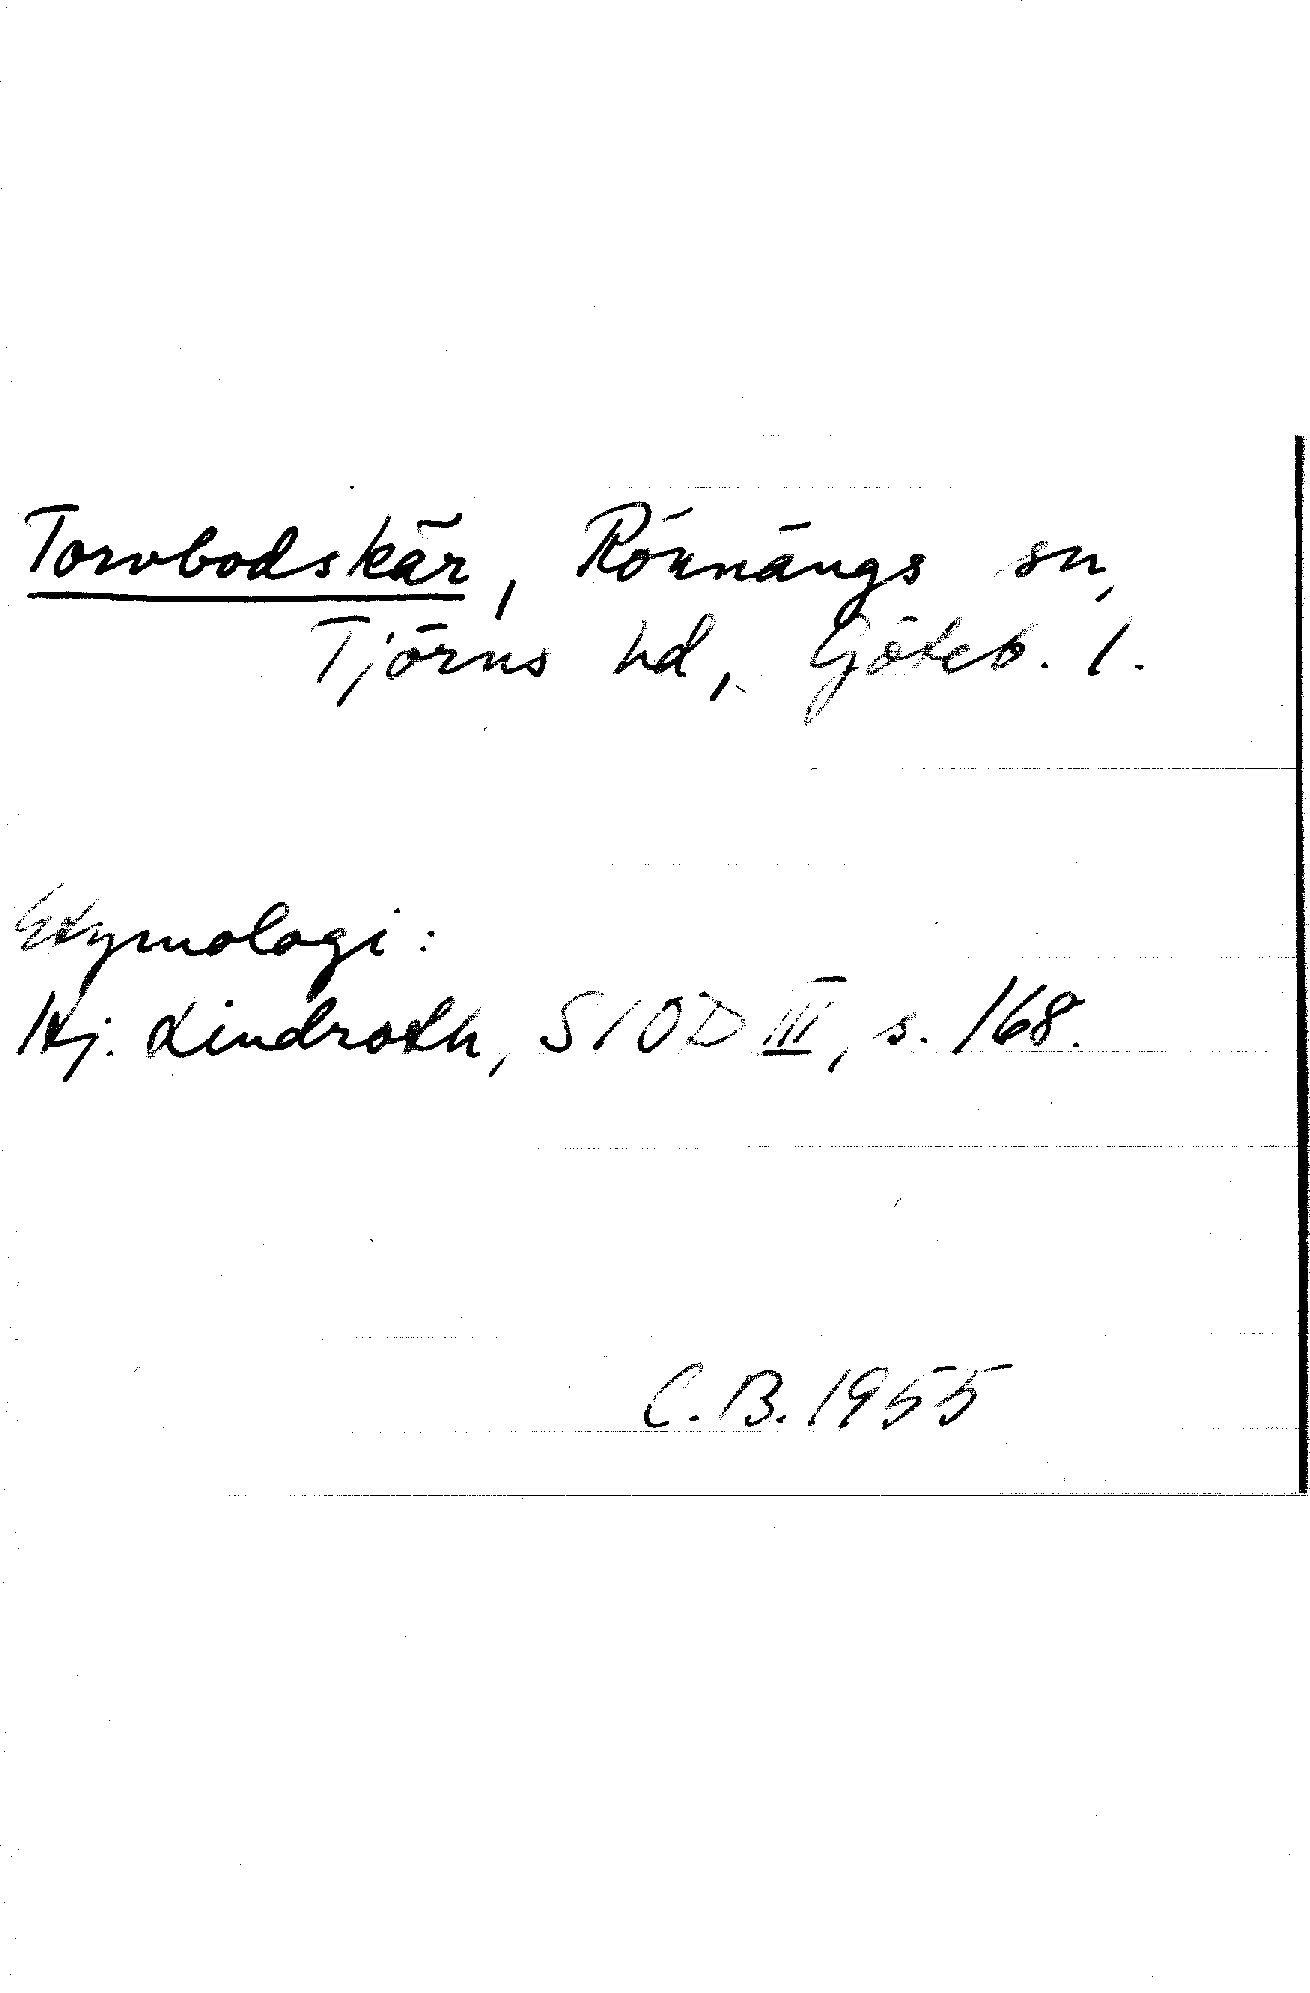 Torvbodskär, Rönnängs sn,
Tjörns hd, Göteb. l.
Etymologi:
Hj. Lindroth, SIOD III, s. 168.
C.B. 1955